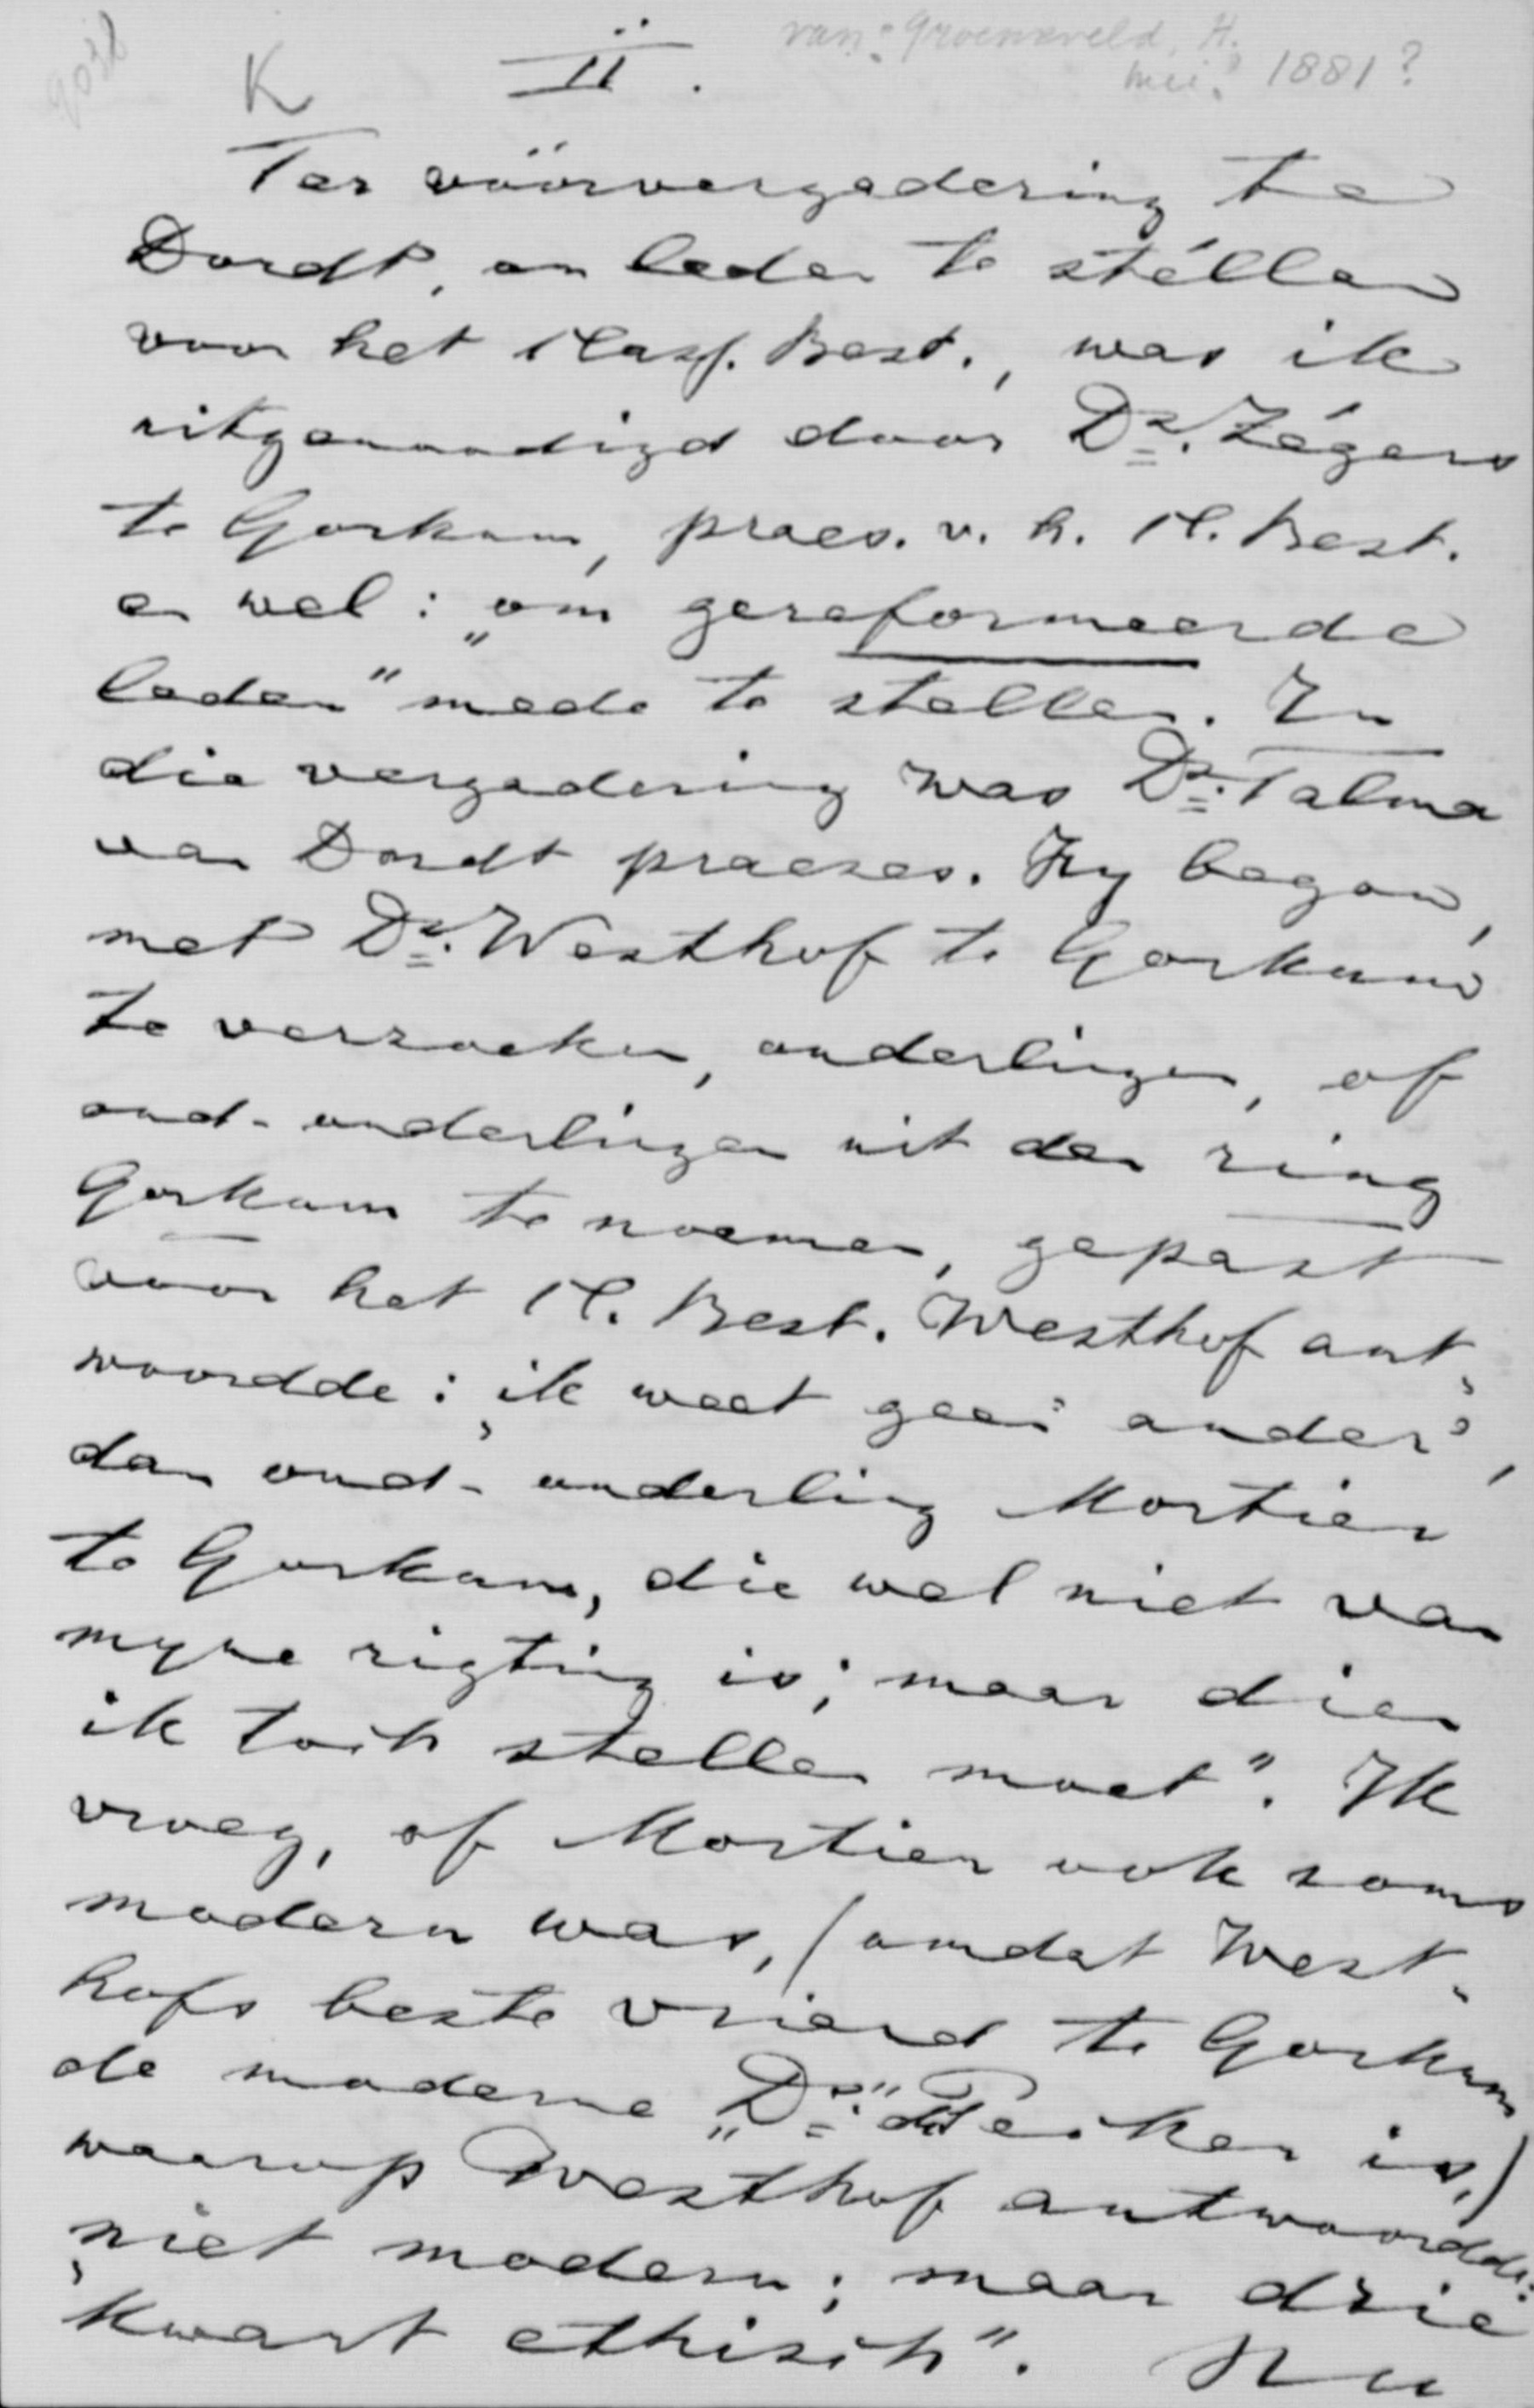 9038
van: Groeneveld, H.
K II. mei? 1881?
Ter vöörvergadering te
Dordt, om leden te stéllen
voor het Klass. Best., was ik
uitgenoodigd door Ds. Zégers
te Gorkum, praes. v. h. Kl. Best.
en wel: „om gereformeerde
leden" mede te stellen. In
die vergadering was Ds. Talma
van Dordt praeses. Hy begon,
met Ds. Westhof te Gorkum
te verzoeken, ouderlingen, of
oud-ouderlingen uit den ring
Gorkum te noemen, gepast
voor het Kl. Best. Westhof ant„
woordde: „ik weet geen ander',
dan oud-ouderling Mortier
te Gorkum, die wel niet van
myne rigting is; maar dien
ik toch stellen moet". Ik
vroeg, of Mortier ook soms
modern was, (omdat West-
hofs beste vriend te Gorkum
de moderne „Ds." Peiker is,)
waarop Westhof antwoordde:
„niet modern; maar drie
kwart ethisch". Nu